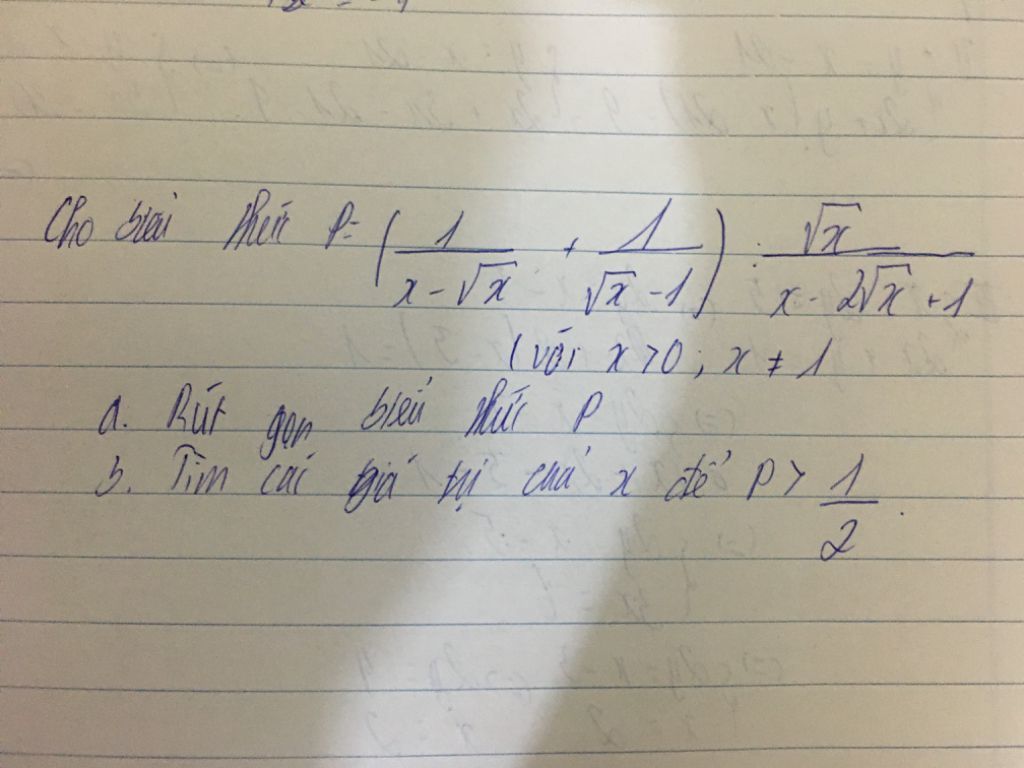 Cho biểu thức P = ( 1/(x - √x) + 1/(√x - 1) ) : √x/(x - 2√x + 1)
(với x > 0 ; x ≠ 1
a. Rút gọn biểu thức P
b. Tìm các giá trị của x để P > 1/2.